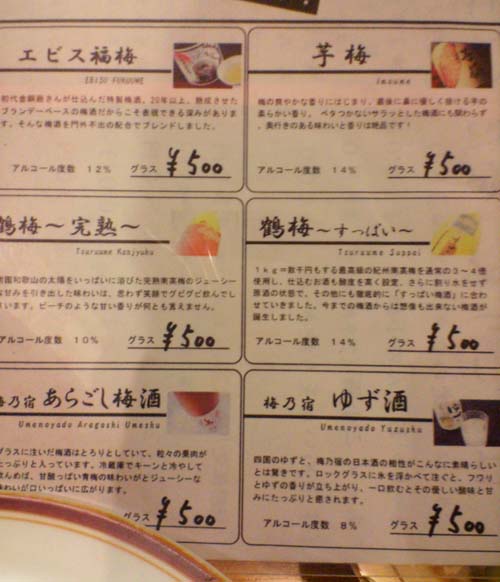 エビス福梅
EBISU FUKUUME
初代金銅政きんが仕込んだ特製梅酒。20年以上、熟成させた
ブランデーベースの梅酒だからこそ表現できる深みがありま
す。そんな梅酒を門外不出の配合でブレンドしました。
アルコール度数 12% グラス ¥500
芋梅
Imoume
梅の爽やかな香りにはじまり、最後に鼻に優しく抜ける芋の
柔らかい香り。ベタつかないサラッとした梅酒にも関わらず
、奥行きのある味わいと香りは絶品です!
アルコール度数 14% グラス ¥500
鶴梅～完熟～
Tsuruume Kanjyuku
南国和歌山の太陽をいっぱいに浴びた完熟南高梅のジューシー
な甘みを引き出した味わいは、思わず笑顔でグビグビ飲んでし
まいます。ピーチのような甘い香りが何とも言えません。
アルコール度数 10% グラス ¥500
鶴梅～すっぱい～
Tsuruume Suppai
1kg=数千円もする最高級の紀州南高梅を通常の3～4倍
使用し、仕込むお酒も酸度を高く設定、さらに割り水をせず
原酒の状態で、その他にも徹底的に「すっぱい梅酒」に合わ
せていきました。今までの梅酒からは想像も出来ない梅酒が
誕生しました。
アルコール度数 14% グラス ¥500
梅乃宿 あらごし梅酒
Umenoyado Aragoshi Umeshu
グラスに注いだ梅酒はとろりとしていて、粒々の果肉が
たっぷりと入っています。冷蔵庫でキーンと冷やして
飲んめば、甘酸っぱい青梅の味わいがとジューシーな
味わいが口いっぱいに広がります。
グラス ¥500
梅乃宿 ゆず酒
Umenoyado Yuzushu
四国のゆずと、梅乃宿の日本酒の相性がこんなに素晴らしい
とは驚きです。ロックグラスに氷を浮かべて注ぐと、フワリ
とゆずの香りが立ち上がり、一口飲むとその優しい酸味と甘
みにたっぷりと癒されます。
アルコール度数 8% グラス ¥500